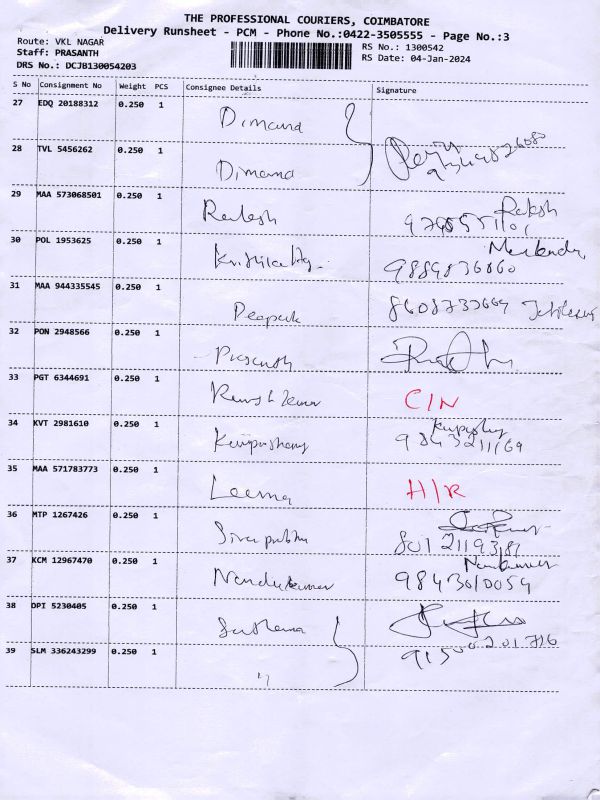 THE PROFESSIONAL COURIERS, COIMBATORE
Delivery Runsheet - PCM - Phone No.:0422-3505555 - Page No.:3
Route: VKL NAGAR
Staff: PRASANTH
DRS No.: DCJB130054203
RS No.: 1300542
RS Date: 04-Jan-2024
S No Consignment No Weight PCS Consignee Details Signature
27 EDQ 20188312 0.250 1 Dimand
28 TVL 5456262 0.250 1 Dimand
29 MAA 573068501 0.250 1 Rakesh Rakesh
30 POL 1953625 0.250 1
9884836860
31 MAA 944335545 0.250 1 Deepak
32 PON 2948566 0.250 1 Prasanth
33 PGT 6344691 0.250 1 C/N
34 KVT 2981610 0.250 1
9843211169
35 MAA 571783773 0.250 1 Leema H/R
36 MTP 1267426 0.250 1
37 KCM 12967470 0.250 1 Nandukumar Nandkumar
9843010054
38 OPI 5230405 0.250 1
39 SLM 336243299 0.250 1 "